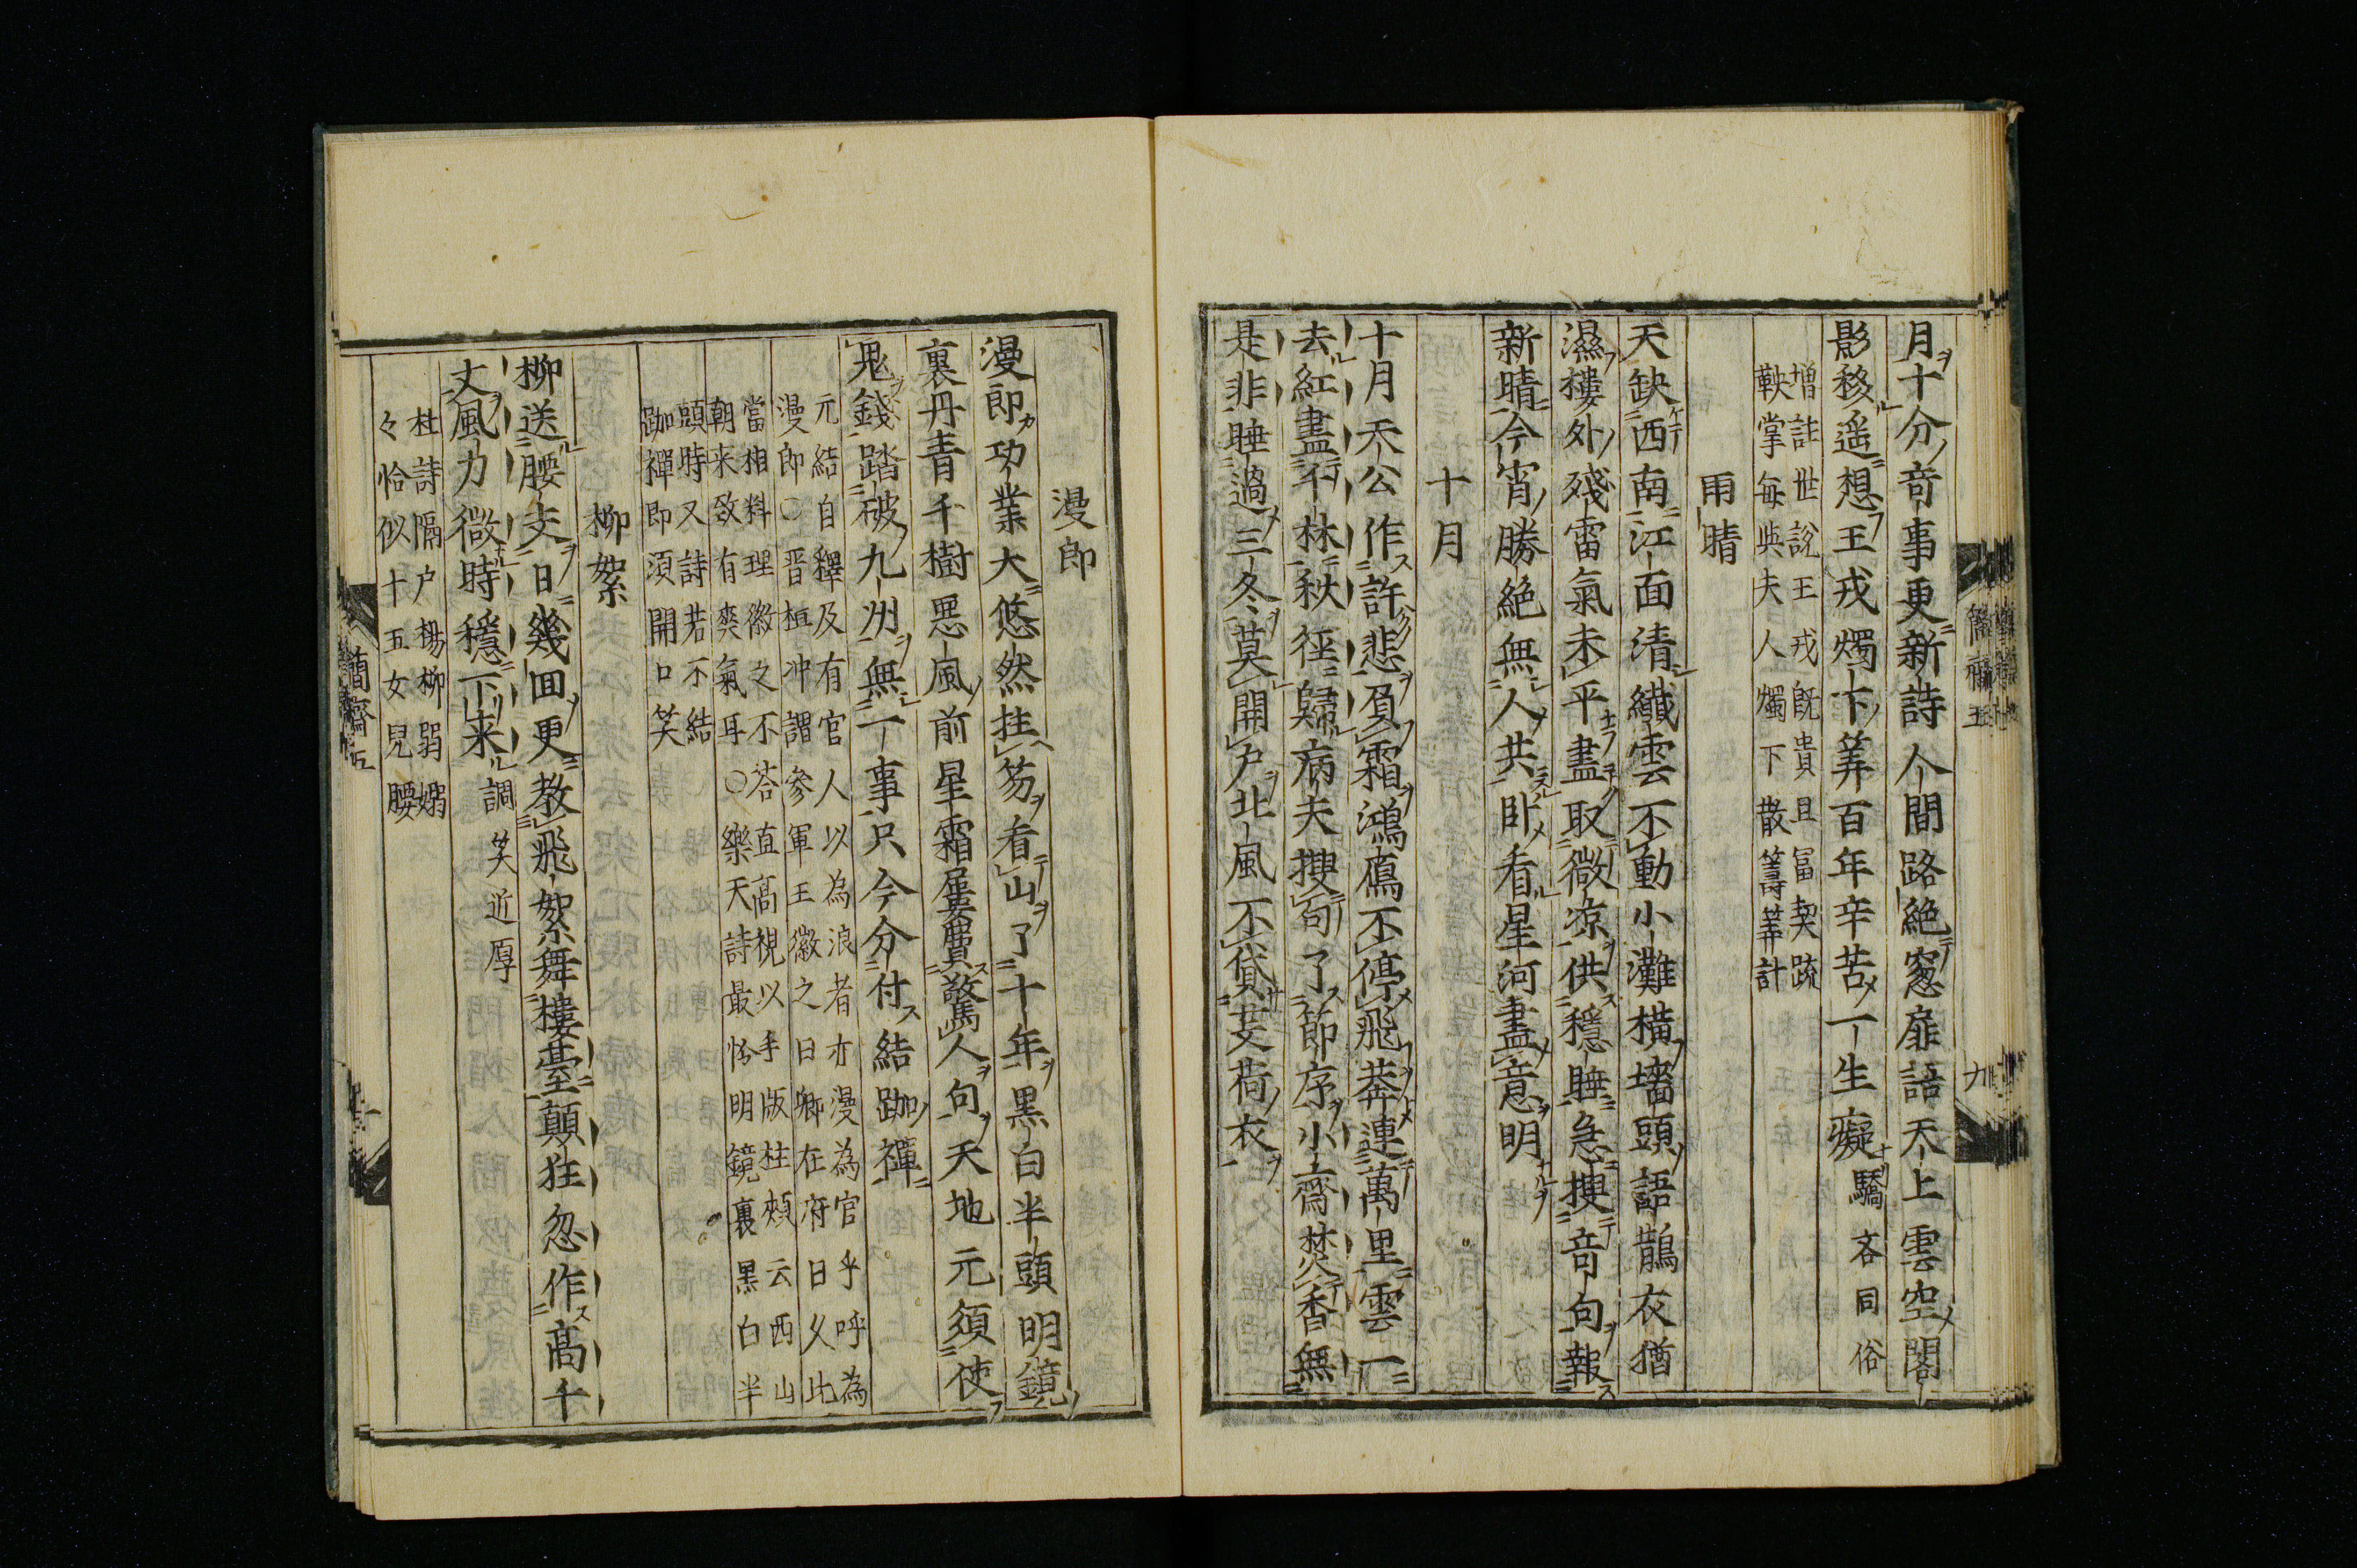 月十分竒事更新詩人間路絕窓扉語天上雲空閣
影移遥想王戎燭下筭百年辛苦一生癡驕吝同俗
増註世說王戎旣貴且冨契疏
鞅掌每與夫人燭下散籌筭計
雨晴
天缺西南江面清纎雲不動小灘横墻頭語鵲衣猶
濕樓外殘雷氣未平盡取微凉供穩睡急搜竒句報
新晴今宵勝絶無人共卧看星河盡意明
十月
十月天公作許悲負霜鴻鴈不停飛莽連萬里雲一
去紅盡千林秋徑歸病夫搜句了節序小齋焚香無
是非睡過三冬莫開戶北風不貸芰荷衣
簡齋五
九
漫郎
漫郎功業大悠然拄笏看山了十年黑白半頭明鏡
裏丹青千樹惡風前星霜屢費驚人句天地元須使
鬼錢踏破九州無一事只今分付結跏禪
元結自釋及有官人以為浪者亦漫為官乎呼為
漫郎〇晉桓冲謂參軍王徽之曰卿在府日久比
當相料理徽之不荅直高視以手版柱頰云西山
朝来致有爽氣耳〇樂天詩最怜明鏡裏黑白半
頭時又詩若不結
跏禪即須開口笑
柳絮
柳送腰支日幾囬更教飛絮舞樓臺顛狂忽作高千
丈風力微時穩下来調笑近厚
杜詩隔户楊柳弱嫋
々恰似十五女兒腰
簡齋五